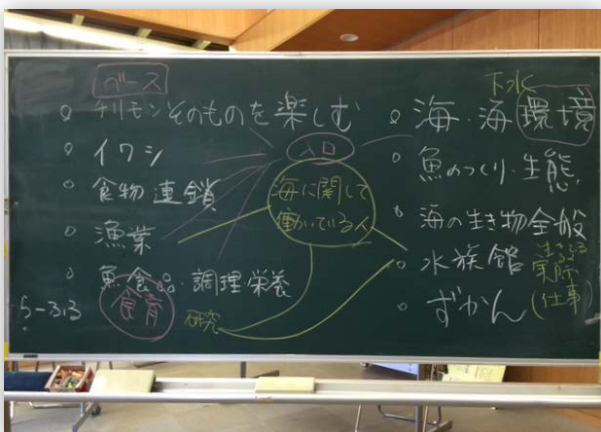 ベース
チリモンそのものを楽しむ
イワシ
食物連鎖
漁業
魚食品・調理栄養
食育
研究
入口
海に関して
働いている人
下水
海・海環境
魚のつくり・生態
海の生き物全般
水族館
実際
ずかん
(仕事)